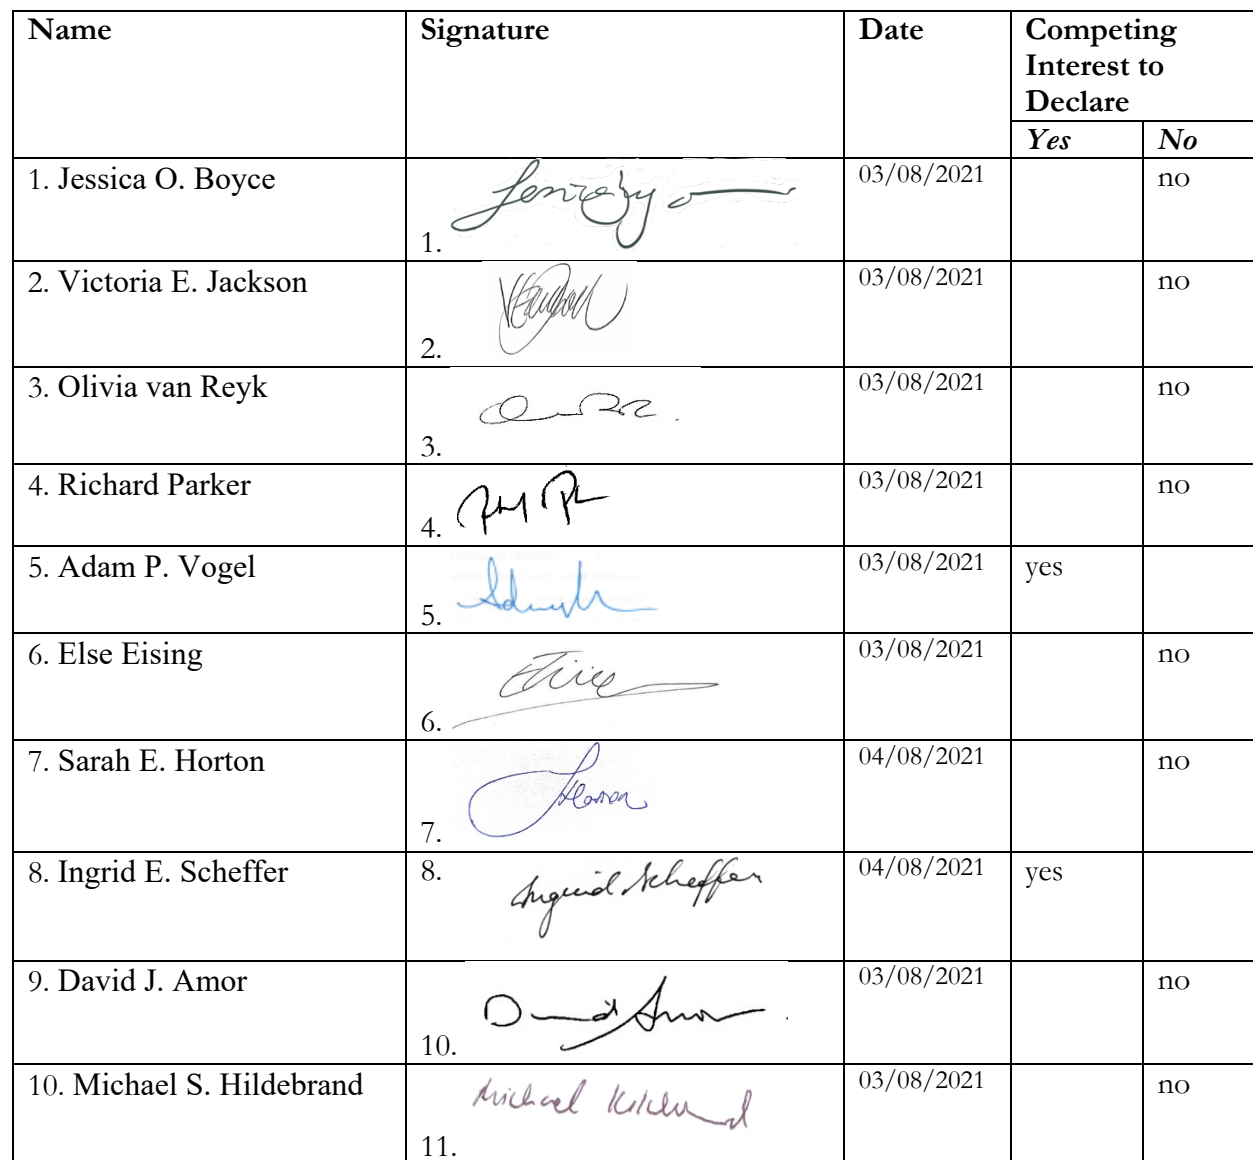 Name Signature Date Competing
Interest to
Declare
Yes No
1. Jessica O. Boyce 03/08/2021 no
1.
2. Victoria E. Jackson 03/08/2021 no
2.
3. Olivia van Reyk 03/08/2021 no
3.
4. Richard Parker 03/08/2021 no
4.
5. Adam P. Vogel 03/08/2021 yes
5.
6. Else Eising 03/08/2021 no
6.
7. Sarah E. Horton 04/08/2021 no
7.
8. Ingrid E. Scheffer 8. Ingrid Scheffer 04/08/2021 yes
9. David J. Amor 03/08/2021 no
10. David Amor
10. Michael S. Hildebrand 03/08/2021 no
11.